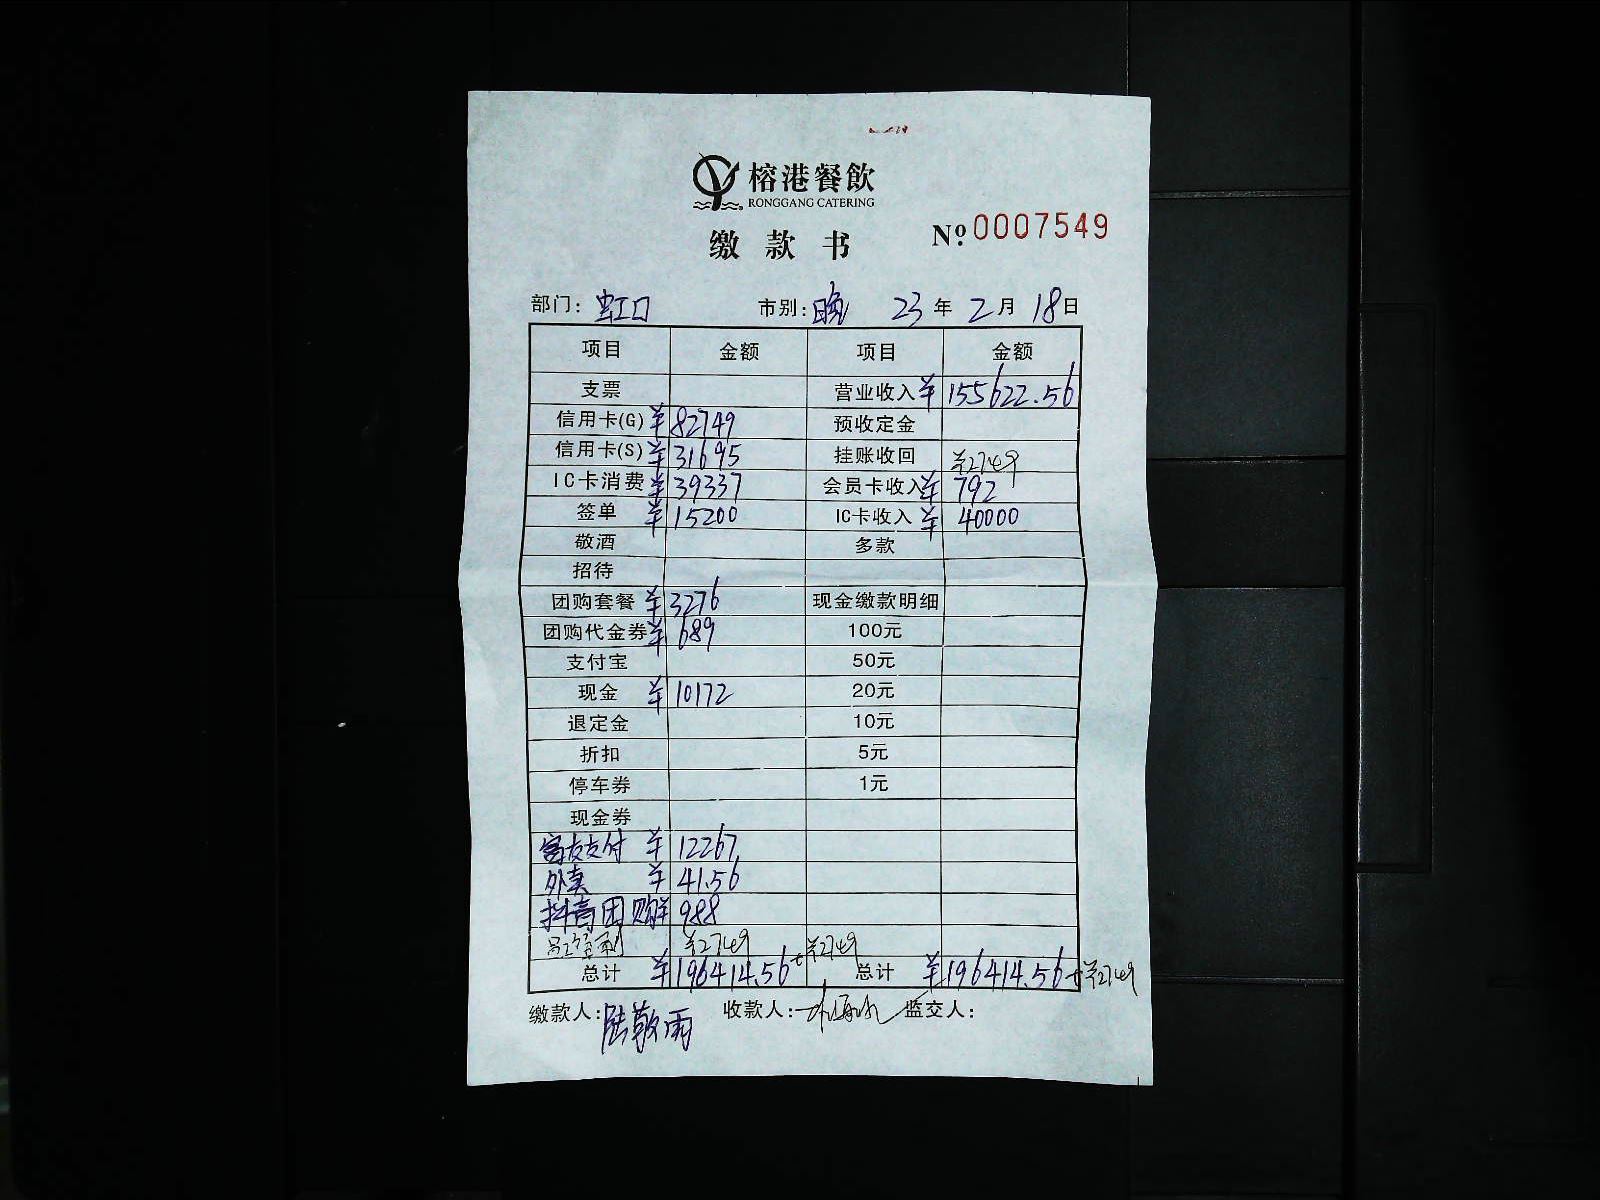 榕港餐飲
RONGGANG CATERING
缴款书
№ 0007549
部门: 虹口 市别: 晚 23年2月18日
项目 金额 项目 金额
支票 营业收入 ¥155622.56
信用卡(G) ¥82749 预收定金
信用卡(S) ¥31695 挂账收回 ¥2749
IC卡消费 ¥39337 会员卡收入 ¥792
签单 ¥15200 IC卡收入 ¥40000
敬酒 多款
招待
团购套餐 ¥3276 现金缴款明细
团购代金券 ¥689 100元
支付宝 50元
现金 ¥10172 20元
退定金 10元
折扣 5元
停车券 1元
现金券
富友支付 ¥12267
外卖 ¥41.56
抖音团购 ¥988
¥2749
总计 ¥196414.56+¥2749 总计 ¥196414.56+¥2749
缴款人: 陆敬雨 收款人: 监交人: